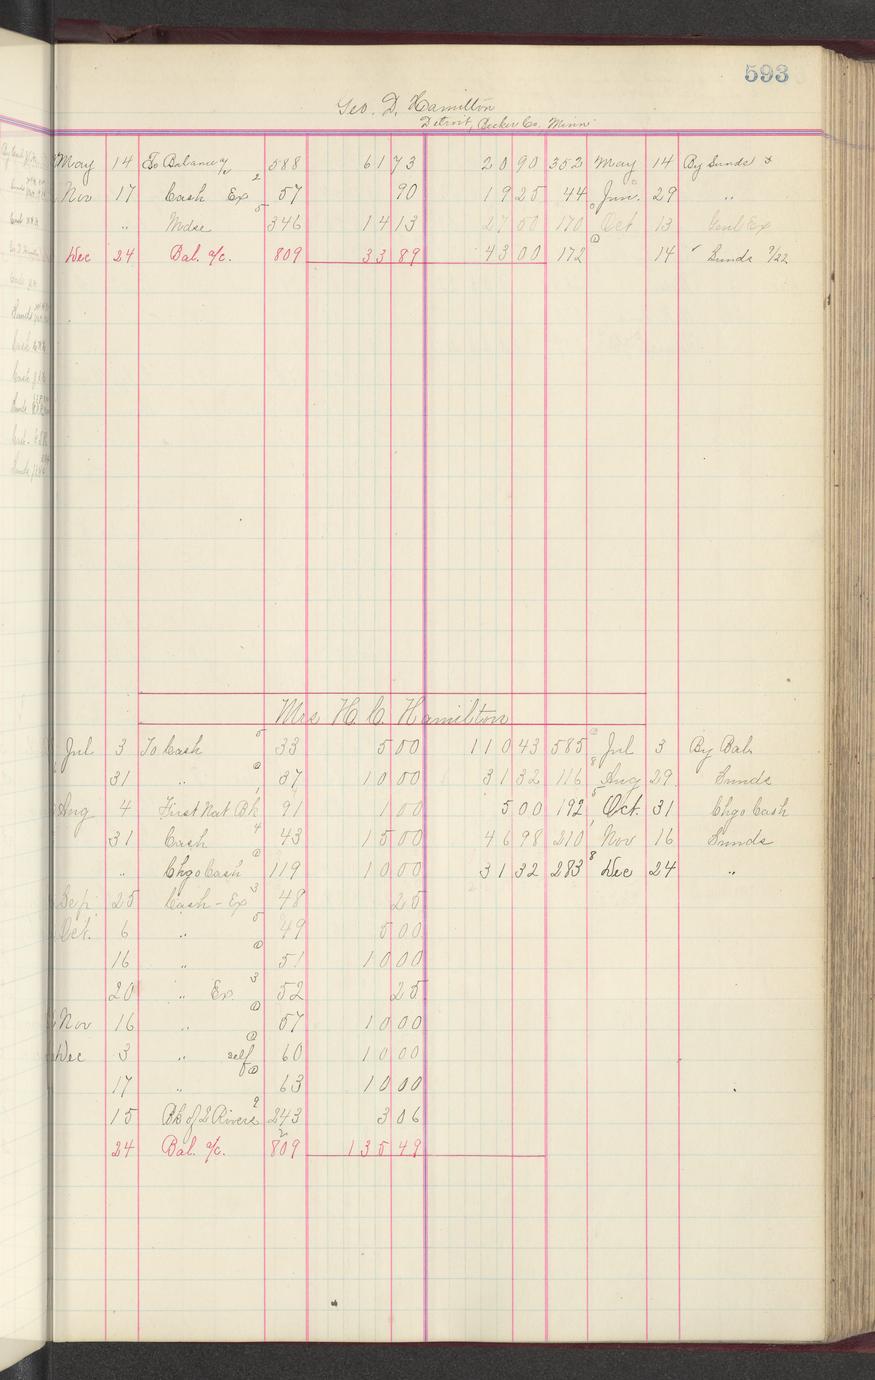 593
Geo. D. Hamilton
Detroit, Becker Co., Minn.
May 14 To Balance a/c 588 61 73 20 90 352 May 14 By Sunds
Nov 17 Cash Ex 2 57 90 19 25 44 Jun. 29 "
" Mdse 5 346 14 13 27 50 170 Oct 13 Genl Ex
Dec 24 Bal. a/c. 809 33 89 43 00 172 14 ✓ Sunds 7/22
Mrs H. C. Hamilton
Jul 3 To Cash 5 33 5 00 110 43 585 Jul 3 By Bal.
31 " 37 10 00 31 32 116 8 Aug 29 Sunds
Aug 4 First Nat Bk 1 91 1 00 5 00 192 5 Oct. 31 Chgo Cash
31 Cash 4 43 15 00 46 98 210 Nov 16 Sunds
" Chgo Cash 119 10 00 31 32 283 8 Dec 24 "
Sep. 25 Cash - Ex 3 48 25
Oct. 6 " 5 49 5 00
16 " 51 10 00
20 " Ex. 3 52 25
Nov 16 " 57 10 00
Dec 3 " self 60 10 00
17 " 63 10 00
15 Bk of 2 Rivers 2 243 3 06
24 Bal. a/c. 2 809 135 49